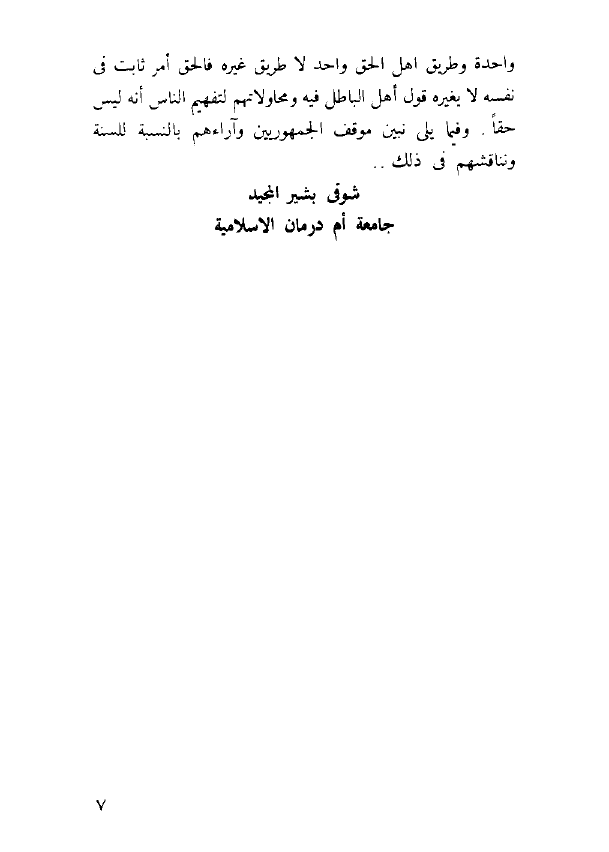 واحدة وطريق اهل الحق واحد لا طريق غيره فالحق أمر ثابت فى
نفسه لا يغيره قول أهل الباطل فيه ومحاولاتهم لتفهيم الناس أنه ليس
حقاً . وفيما يلى نبين موقف الجمهوريين وآراءهم بالنسبة للسنة
ونناقشهم فى ذلك ..
شوقى بشير المجيد
جامعة أم درمان الاسلامية
٧